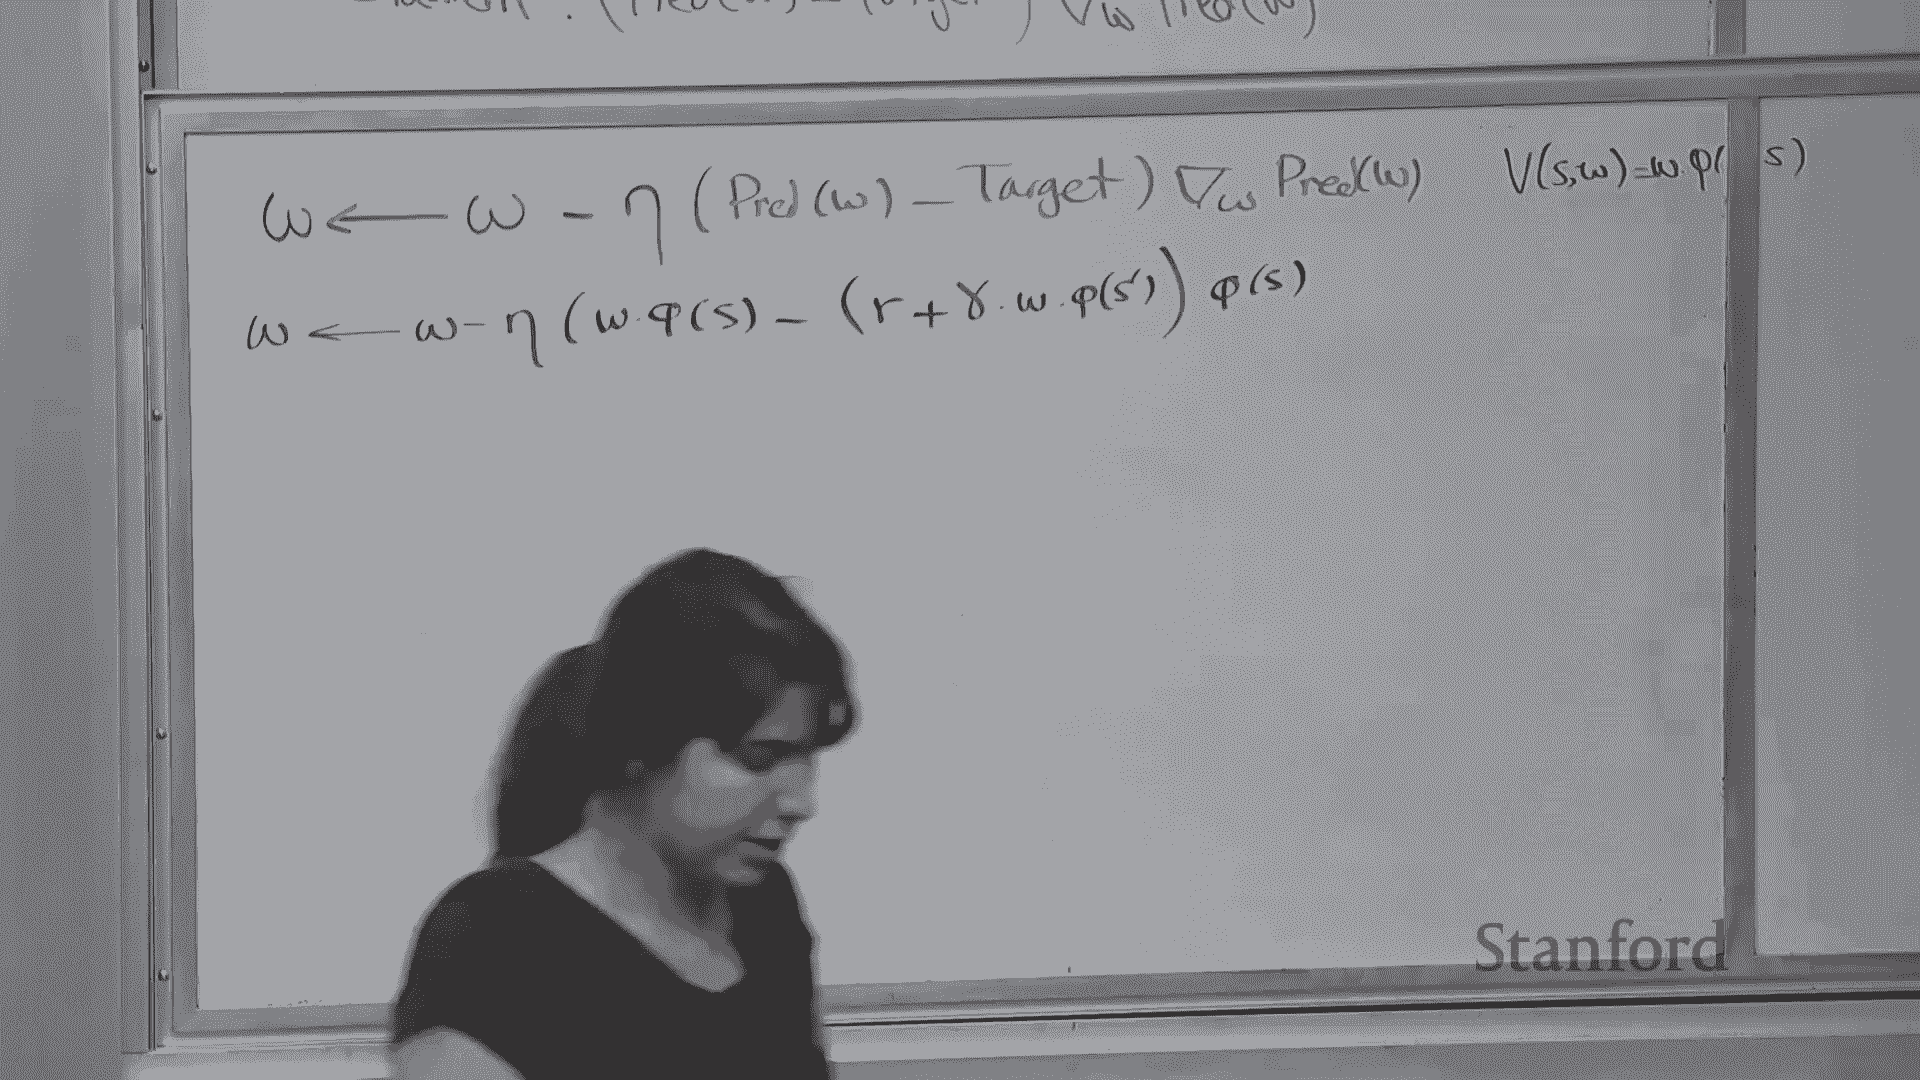 (Pred(w) - Target) ∇w Pred(w)
w ← w - η (Pred(w) - Target) ∇w Pred(w) V(s,w)=w.φ(s)
w ← w - η (w.φ(s) - (r + γ.w.φ(s')) φ(s)
Stanford